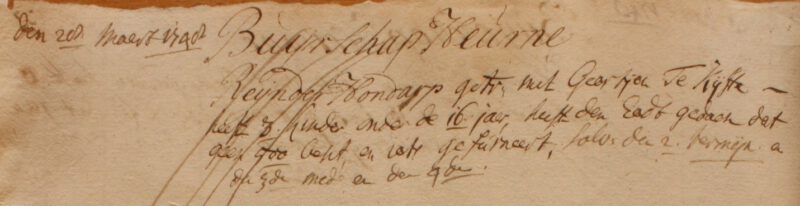 den 20st Maert 1798 Buurschap Heurne
Reijndt Hondarp getr. mit Geertjen Te Kijfte –
heft 8 kinder onder de 16 jar, heft den Eedt gedaen dat
geen 900 besit, en iets gefurneert, Solvs den 2. termijn a
den 3de mede en den 4de